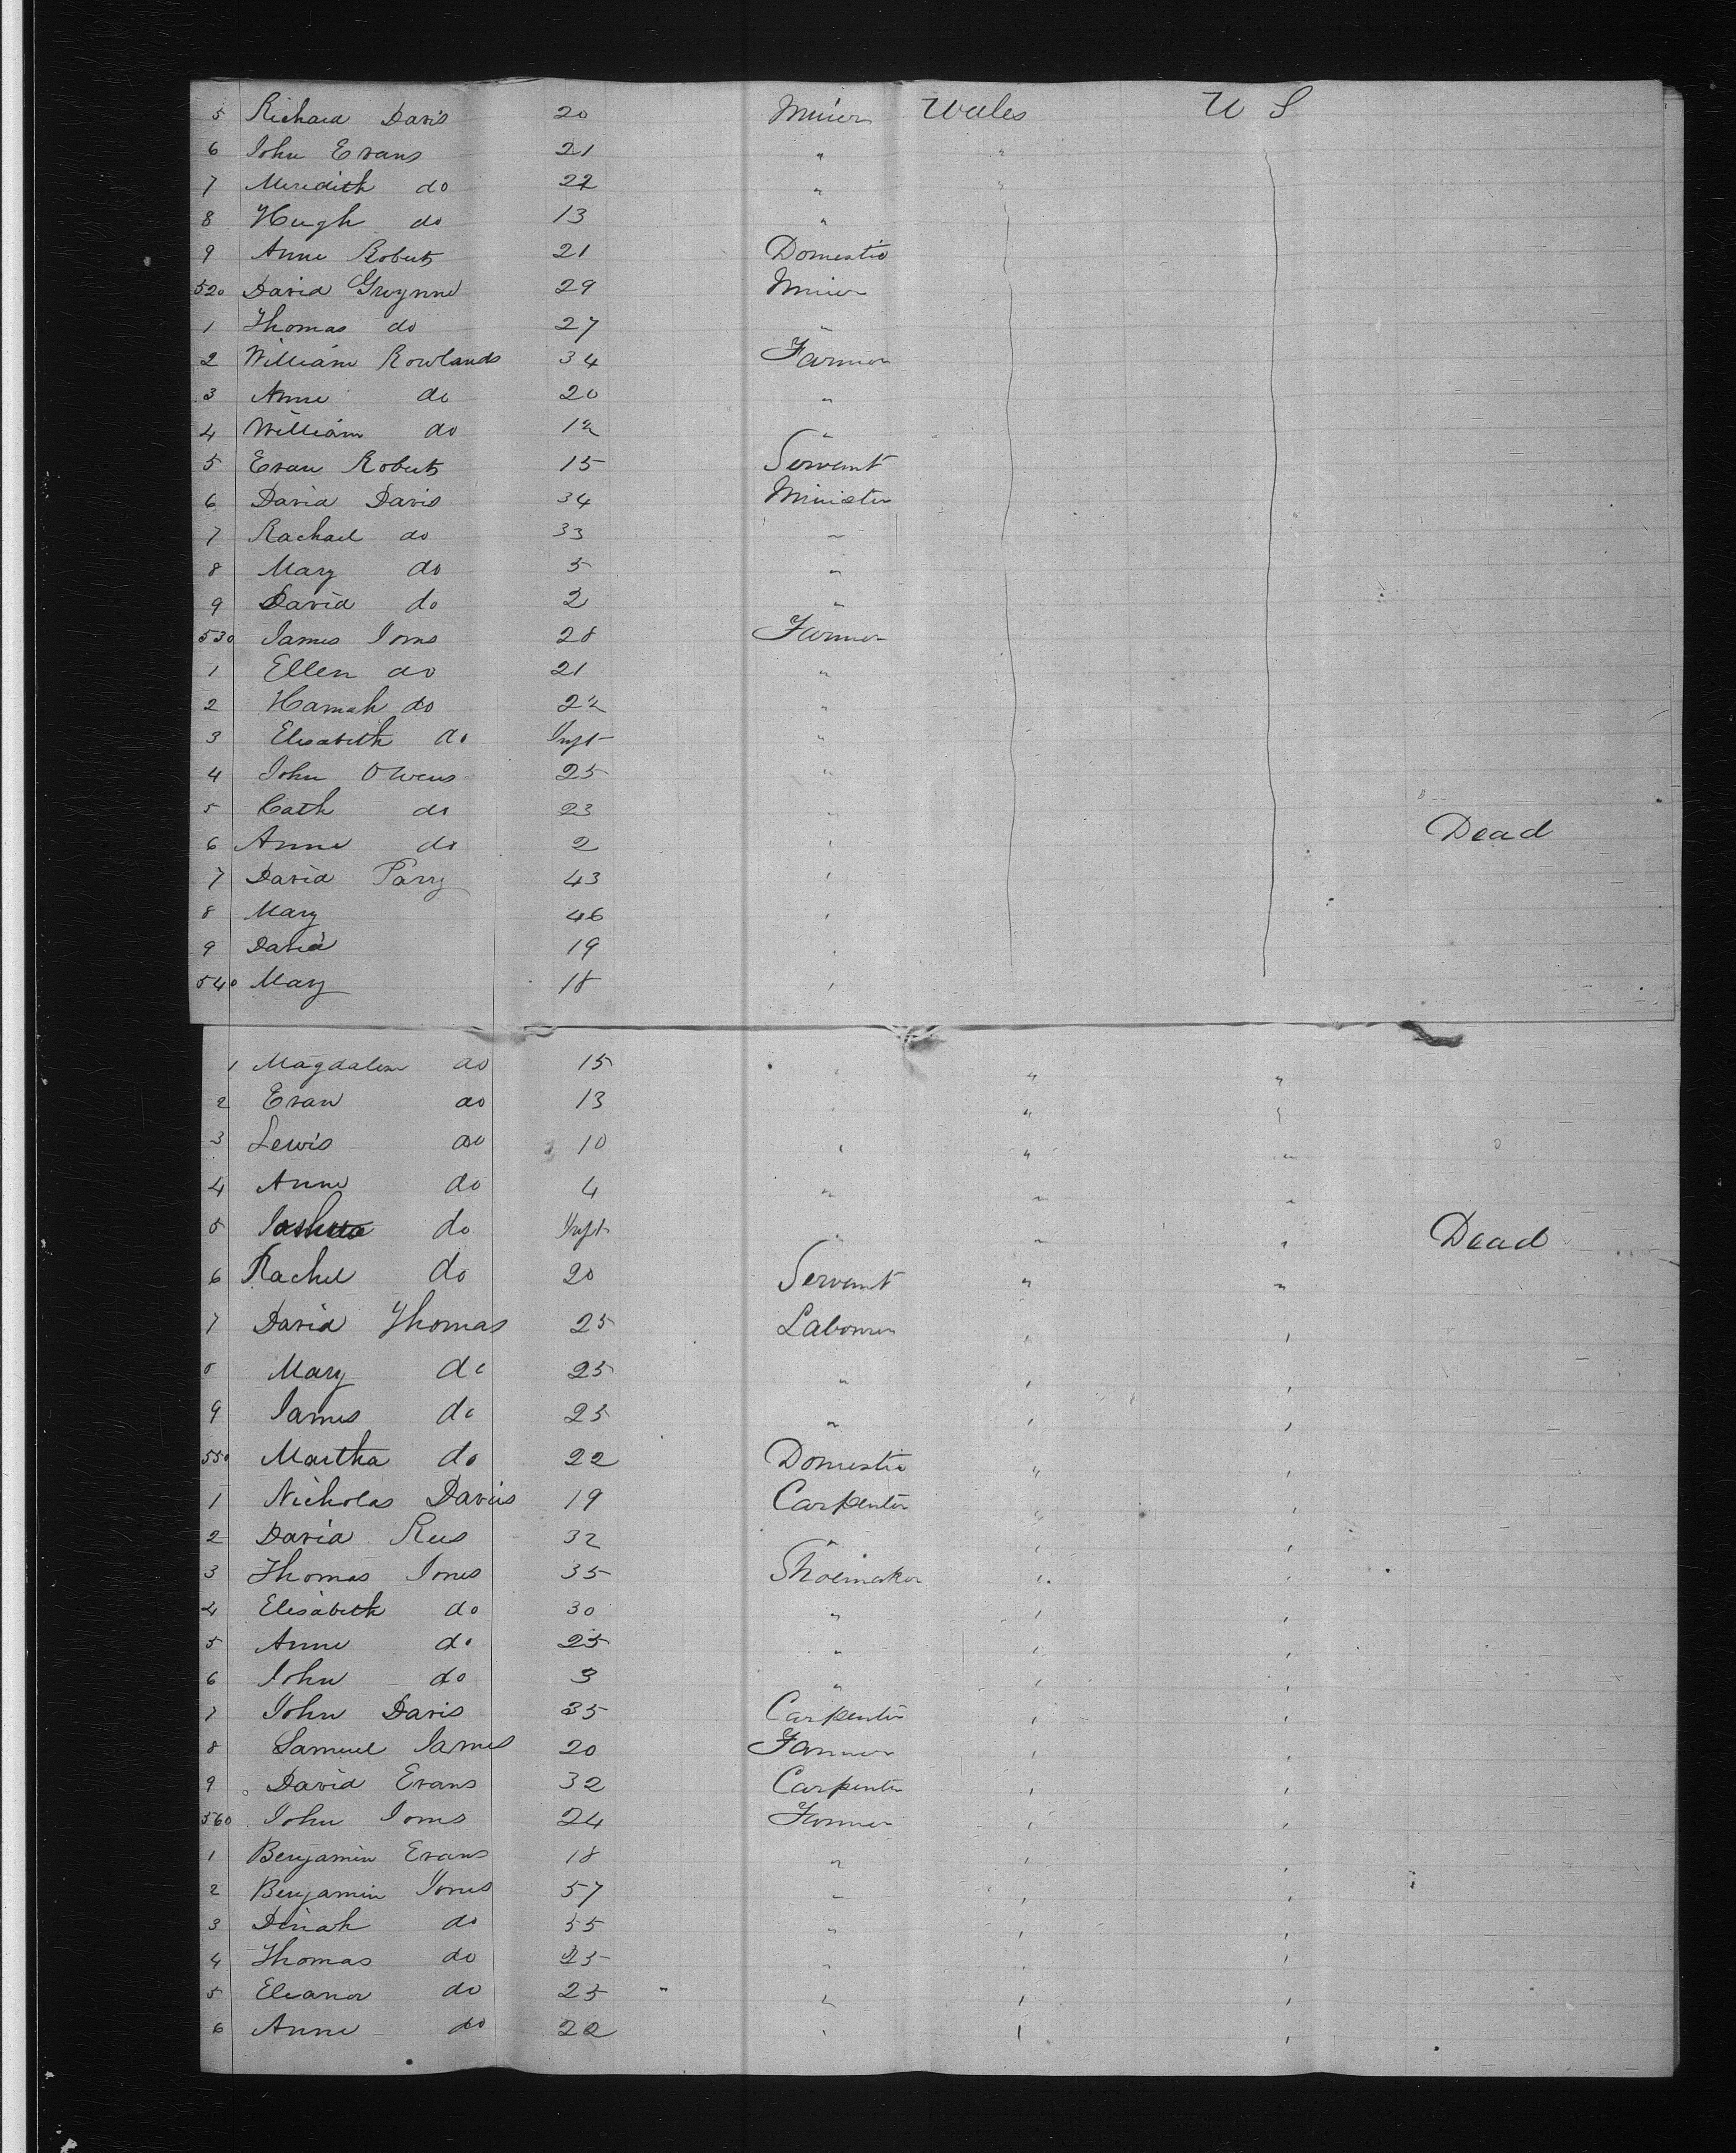 5 Richard Davis 20 Miner Wales U S
6 John Evans 21 " "
7 Meredith do 22 " "
8 Hugh do 13 "
9 Anne Roberts 21 Domestic
520 David Gwynne 29 Miner
1 Thomas do 27 "
2 William Rowlands 34 Farmer
3 Anne do 20 "
4 William do 12 "
5 Evan Roberts 15 Servant
6 David Davis 34 Minister
7 Rachael do 33 "
8 Mary do 5 "
9 David do 2 "
530 James Jones 28 Farmer
1 Ellen do 21 "
2 Hannah do 22 "
3 Elisabeth do Inft "
4 John Owens 25 "
5 Cath do 23 "
6 Anne do 2 " Dead
7 David Parry 43 "
8 Mary 46 "
9 David 19 "
540 Mary 18 "
1 Magdalen do 15 " " "
2 Evan do 13 " " "
3 Lewis do 10 " " "
4 Anne do 4 " " "
5 Joshua do Inft " " " Dead
6 Rachel do 20 Servant " "
7 David Thomas 25 Labourer " "
8 Mary do 25 " " "
9 James do 23 " " "
550 Martha do 22 Domestic " "
1 Nicholas Davies 19 Carpenter " "
2 David Rees 32 " " "
3 Thomas Jones 35 Shoemaker " "
4 Elisabeth do 30 " " "
5 Anne do 25 " " "
6 John do 3 " " "
7 John Davis 35 Carpenter " "
8 Samuel James 20 Farmer " "
9 David Evans 32 Carpenter " "
560 John Jones 24 Farmer " "
1 Benjamin Evans 18 " " "
2 Benjamin Jones 57 " " "
3 Dinah do 55 " " "
4 Thomas do 25 " " "
5 Eleanor do 23 " " "
6 Anne do 22 " " "